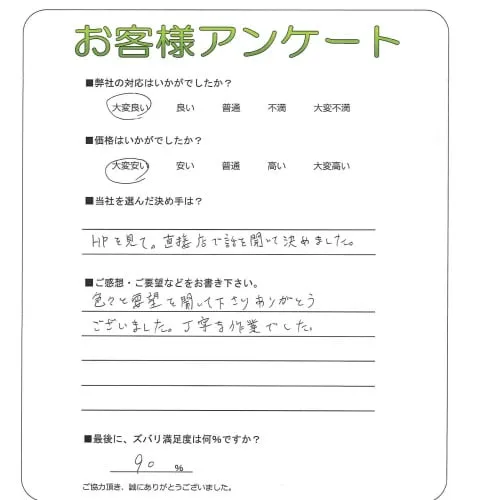 お客様アンケート
■弊社の対応はいかがでしたか？
大変良い 良い 普通 不満 大変不満
■価格はいかがでしたか？
大変安い 安い 普通 高い 大変高い
■当社を選んだ決め手は？
HPを見て。直接店で話を聞いて決めました。
■ご感想・ご要望などをお書き下さい。
色々と要望を聞して下さりありがとう
ございました。丁寧な作業でした。
■最後に、ズバリ満足度は何%ですか？
90 %
ご協力頂き、誠にありがとうございました。